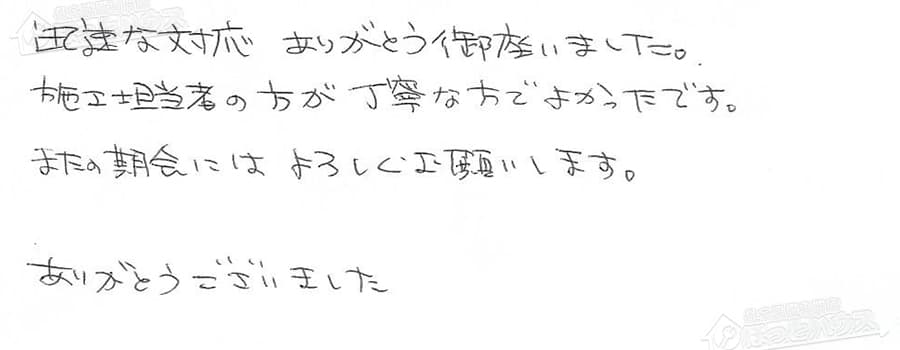 迅速な対応 ありがとう御座いました。
施工担当者の方が丁寧な方でよかったです。
またの期会には よろしくお願いします。
ありがとうございました